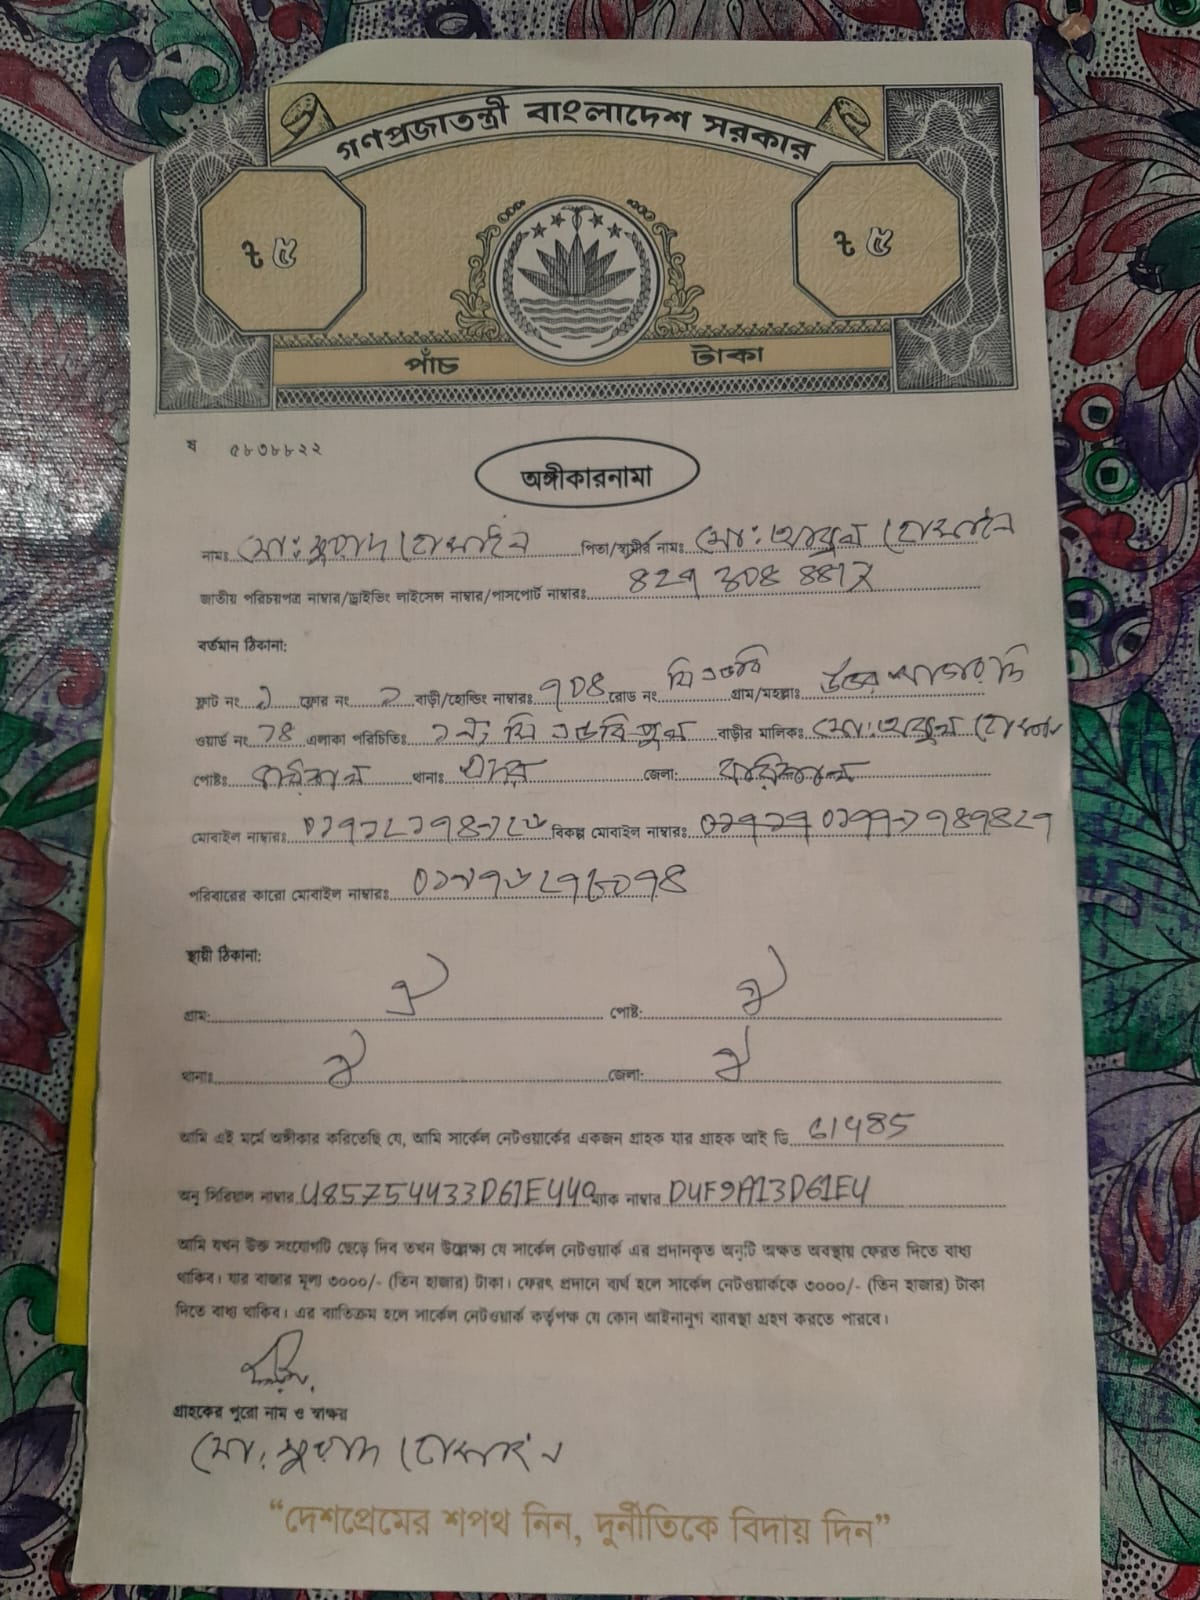 গণপ্রজাতন্ত্রী বাংলাদেশ সরকার
৳ ৫ ৳ ৫
পাঁচ টাকা
ষ ৫৮৩৮৮২২
অঙ্গীকারনামা
নামঃ মো: মুরাদ হোসাইন পিতা/স্বামীর নামঃ মো: আবুল হোসাইন
জাতীয় পরিচয়পত্র নাম্বার/ড্রাইভিং লাইসেন্স নাম্বার/পাসপোর্ট নাম্বারঃ
বর্তমান ঠিকানা:
ফ্লাট নং ফ্লোর নং বাড়ী/হোল্ডিং নাম্বারঃ রোড নং সি এন্ড বি গ্রাম/মহল্লাঃ উত্তর
ওয়ার্ড নং এলাকা পরিচিতিঃ ১নং সি এন্ড বি পুল বাড়ীর মালিকঃ মো: আবুল হোসেন
পোষ্টঃ বরিশাল থানাঃ সদর জেলা: বরিশাল
মোবাইল নাম্বারঃ বিকল্প মোবাইল নাম্বারঃ
পরিবারের কারো মোবাইল নাম্বারঃ
স্থায়ী ঠিকানা:
গ্রাম: ঐ পোষ্ট: ঐ
থানাঃ ঐ জেলা: ঐ
আমি এই মর্মে অঙ্গীকার করিতেছি যে, আমি সার্কেল নেটওয়ার্কের একজন গ্রাহক যার গ্রাহক আই ডি
অনু সিরিয়াল নাম্বার 485754433D61E449 ম্যাক নাম্বার D4F9A13D61E4
আমি যখন উক্ত সংযোগটি ছেড়ে দিব তখন উল্লেক্ষ্য যে সার্কেল নেটওয়ার্ক এর প্রদানকৃত অনুটি অক্ষত অবস্থায় ফেরত দিতে বাধ্য
থাকিব। যার বাজার মূল্য ৩০০০/- (তিন হাজার) টাকা। ফেরৎ প্রদানে ব্যর্থ হলে সার্কেল নেটওয়ার্ককে ৩০০০/- (তিন হাজার) টাকা
দিতে বাধ্য থাকিব। এর ব্যতিক্রম হলে সার্কেল নেটওয়ার্ক কর্তৃপক্ষ যে কোন আইনানুগ ব্যাবস্থা গ্রহণ করতে পারবে।
গ্রাহকের পুরো নাম ও স্বাক্ষর
মো: মুরাদ হোসাইন
“দেশপ্রেমের শপথ নিন, দুর্নীতিকে বিদায় দিন”